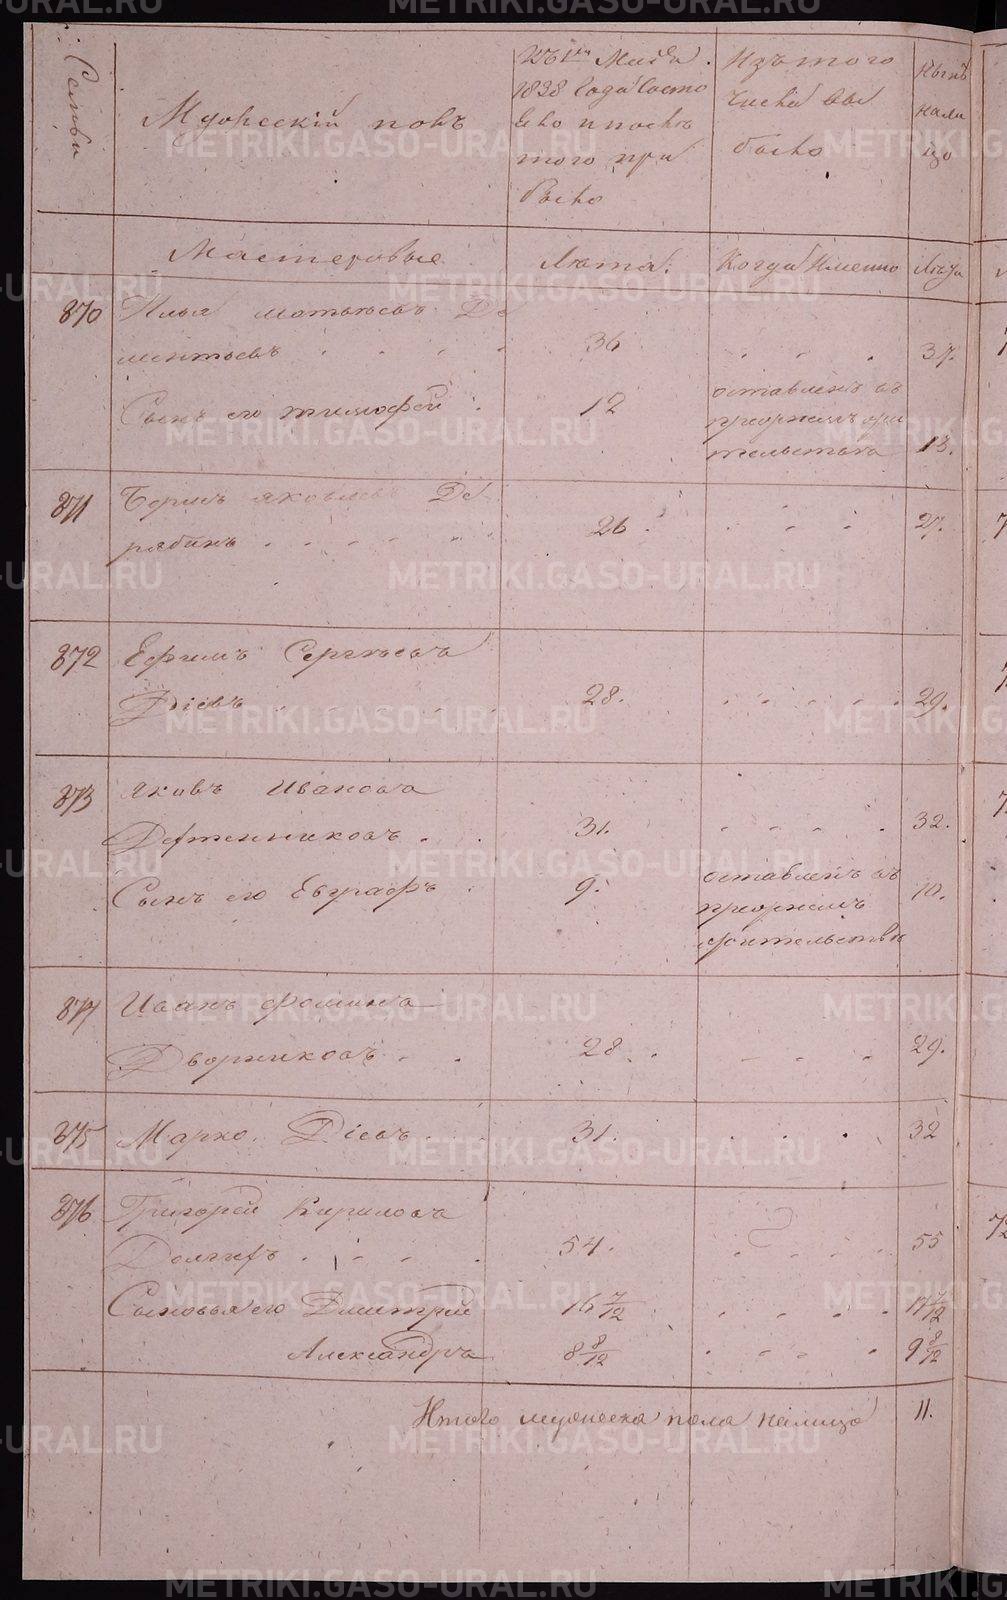 Семьи
Мужескій полъ
Въ 1е Маія
1838 года состо
яло и послѣ
того при
было
Изъ того
числа вы
было
Нынѣ
нали
цо
Мастеровые
Люта.
Когда Именно
Люта
870 Илья Матвѣевъ Де
ментьевъ 36 37.
Сынъ его Тимофей 12 13.
оставленъ въ
прежнемъ жи
тельства
871 Борисъ Яковлевъ Де
рябинъ 26. 27.
872 Ефимъ Сергѣевъ
Діевъ 28. 29.
873 Яковъ Ивановъ
31. 32.
Сынъ его Евграфъ 9. 10.
оставленъ въ
прежнемъ
жительства
874 Иванъ Фоминъ
Дворниковъ 28 29.
875 Марко Діевъ 31. 32
876 Григорей Кириловъ
54. 55
Сыновья его Дмитрей 16 7/12 17 7/12
Александръ 8 8/12 9 8/12
Итого мужеска пола налицо 11.
METRIKI.GASO-URAL.RU